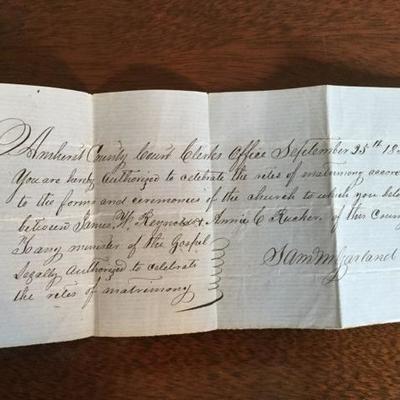 Amherst County Court Clerks Office September 25th 18
You are hereby Authorized to celebrate the rites of matrimony accor
to the forms and ceremonies of the church to which you belo
between James W. Reynolds & Annie C Rucker, of this Coun
To any minister of the Gospel
Legally Authorized to celebrate
the rites of matrimony
Sam M Garland